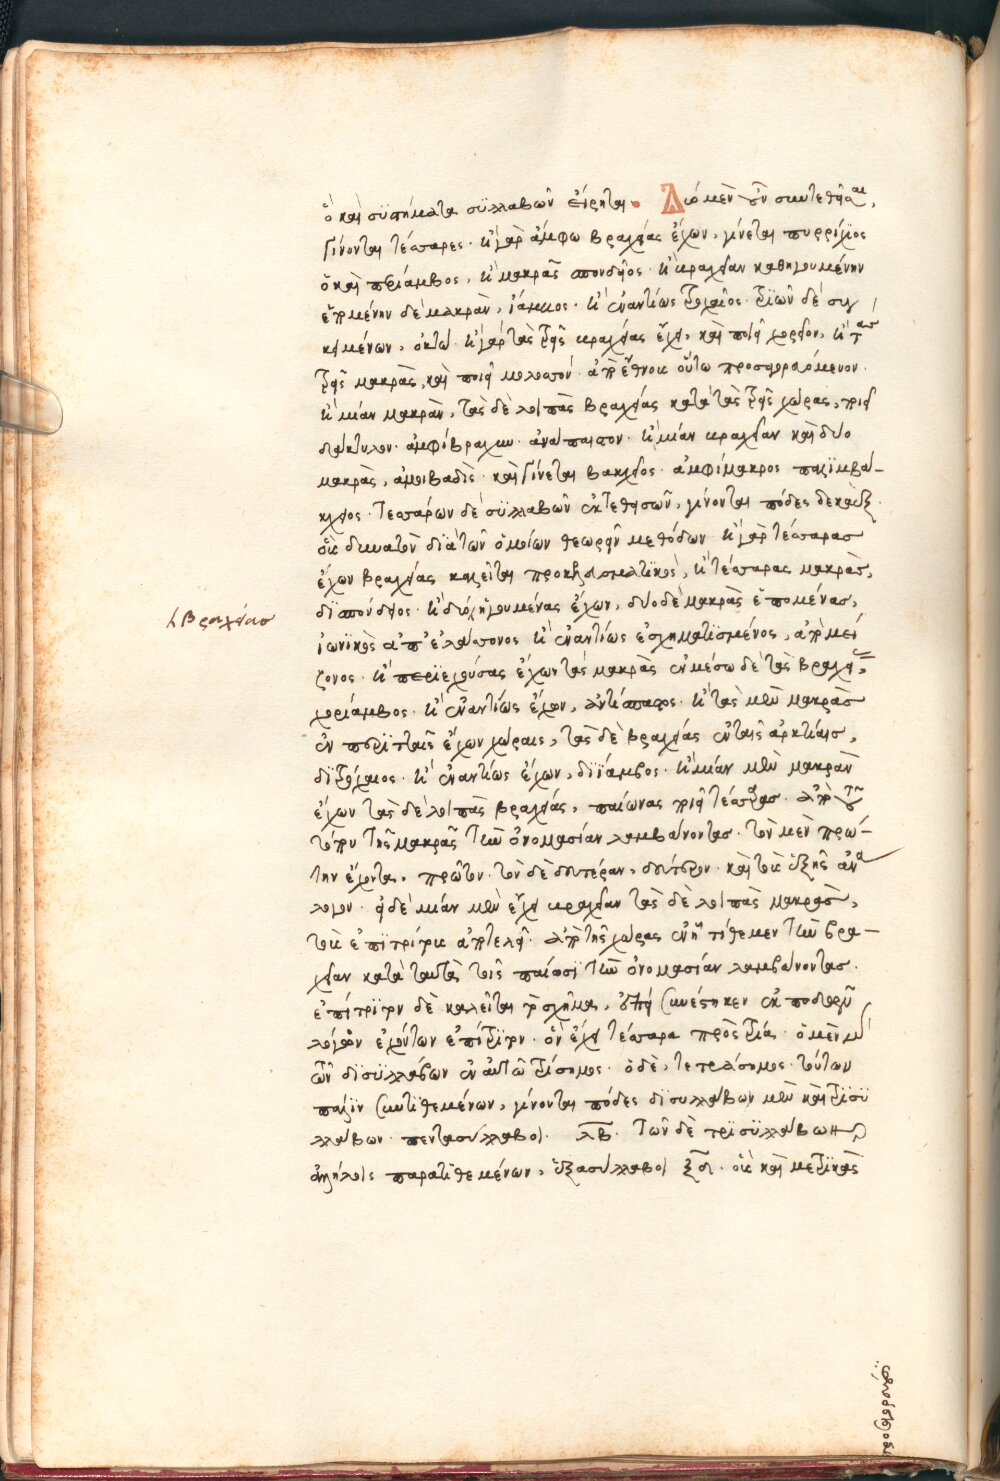 ὁ καὶ σύστήματα σϋλλαβῶν εἴρηται. Δύο μὲν οὖν συντεθῆσαι,
γίνονται τέσσαρες. ἢ γὰρ ἄμφω βραχείας ἔχων, γίνεται πυρρίχϊος
ὁ καὶ περίαμβος, ἢ μακρὰς σπονδεῖος. ἢ βραχεῖαν καθηγουμένην
ἑπομένην δὲ μακρὰν, ἴαμβος. ἢ ἐναντίως τροχαῖος. τριῶν δὲ συγ
κειμένων, ὀκτώ. ἢ γὰρ τὰς τρεῖς βραχείας ἔχει, καὶ ποιεῖ χορεῖον, ἢ τὰς
τρεῖς μακρὰς, καὶ ποιεῖ μολοσσόν. ἀπὸ ἔθνους οὕτω προσαγορευόμενον.
ἢ μίαν μακρὰν, τὰς δὲ λοιπὰς βραχείας κατὰ τὰς τρεῖς χώρας, ποιεῖ
δάκτυλον. ἀμφίβραχυν. ἀνάπαιστον. ἢ μίαν βραχεῖαν καὶ δύο
μακρὰς, ἀμοιβαδὶς. καὶ γίνεται βακχεῖος. ἀμφίμακρος παλϊμβάκ-
χειος. Τεσσάρων δὲ σϋλλαβῶν ἐκτεθεισῶν, γίνονται πόδες δεκαέξ.
οὓς δυνατὸν διὰ τῶν ὁμοίων θεωρεῖν μεθόδων ἢ γὰρ τέσσαρας
ἔχων βραχείας καλεῖται προκελευσματικὸς, ἢ τέσσαρας μακρὰς,
δϊσπόνδειος. ἢ δύο ἡγουμένας ἔχων, δύο δὲ μακρὰς ἑπομένας,
βραχείας
ἰωνϊκὸς ἀπ' ἐλάσσονος ἢ ἐναντίως ἐσχηματϊσμένος, ἀπὸ μεί
ζονος. ἢ περϊεχούσας ἔχων τὰς μακρὰς ἐν μέσω δὲ τὰς βραχείας,
χορίαμβος. ἢ ἐναντίως ἔχων, ἀντίσπαστος. ἢ τὰς μὲν μακρὰς
ἐν περιτταῖς ἔχων χώραις, τὰς δὲ βραχείας ἐν ταῖς ἀρτίαις,
δϊτρόχαιος. ἢ ἐναντίως ἔχων, δϊίαμβος. ἢ μίαν μὲν μακρὰν
ἔχων τὰς δὲ λοιπὰς βραχείας, παίωνας ποιεῖ τέσσαρας. ἀπὸ τοῦ
τόπου τῆς μακρᾶς τὴν ὀνομασίαν λαμβάνοντας. τὸν μὲν πρώ-
την ἔχοντα, πρῶτον. τὸν δὲ δευτέραν, δεύτερον. καὶ τοὺς ἑξῆς ἀνὰ
λόγον. ὁ δὲ μίαν μὲν ἔχει βραχεῖαν τὰς δὲ λοιπὰς μακρὰς,
τοὺς ἐπϊτρίτους ἀποτελεῖ. ἀπὸ τῆς χώρας ἐν ᾗ τίθεμεν τὴν βρα-
χεῖαν κατὰ ταυτὰ τοῖς παίοσϊ τὴν ὀνομασίαν λαμβάνοντας.
ἐπίτρϊτον δὲ καλεῖται τὸ σχῆμα, ὅτι συνέστηκεν ἐκ ποδῶν
λόγον ἐχόντων ἐπίτρϊτον. ὃν ἔχει τέσσαρα πρὸς τρία. ὁ μὲν
ὢν δϊσϋλλάβων ἐν αὐτῶ τρίσημος. ὁ δὲ, τετράσημος. τούτων
πάλϊν συντϊθεμένων, γίνονται πόδες δϊσυλλάβων μὲν καὶ τρϊσϋ
λλάβων πεντασύλλαβοι. λβ. Τῶν δὲ τρϊσϋλλάβων
ἀλλήλοις παρατϊθεμένων, ἑξασύλλαβοι ξδ. οὓς καὶ μετρϊκὰς